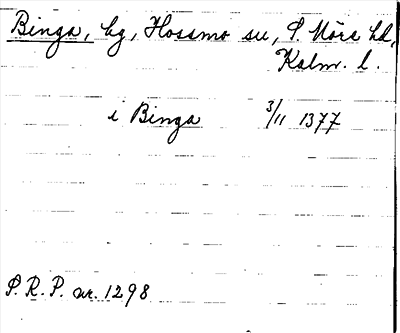 Binga, by, Hossmo sn, S. Möre hd,
Kalm. l.
i Binga 3/11 1377
S.R.P. nr. 1298